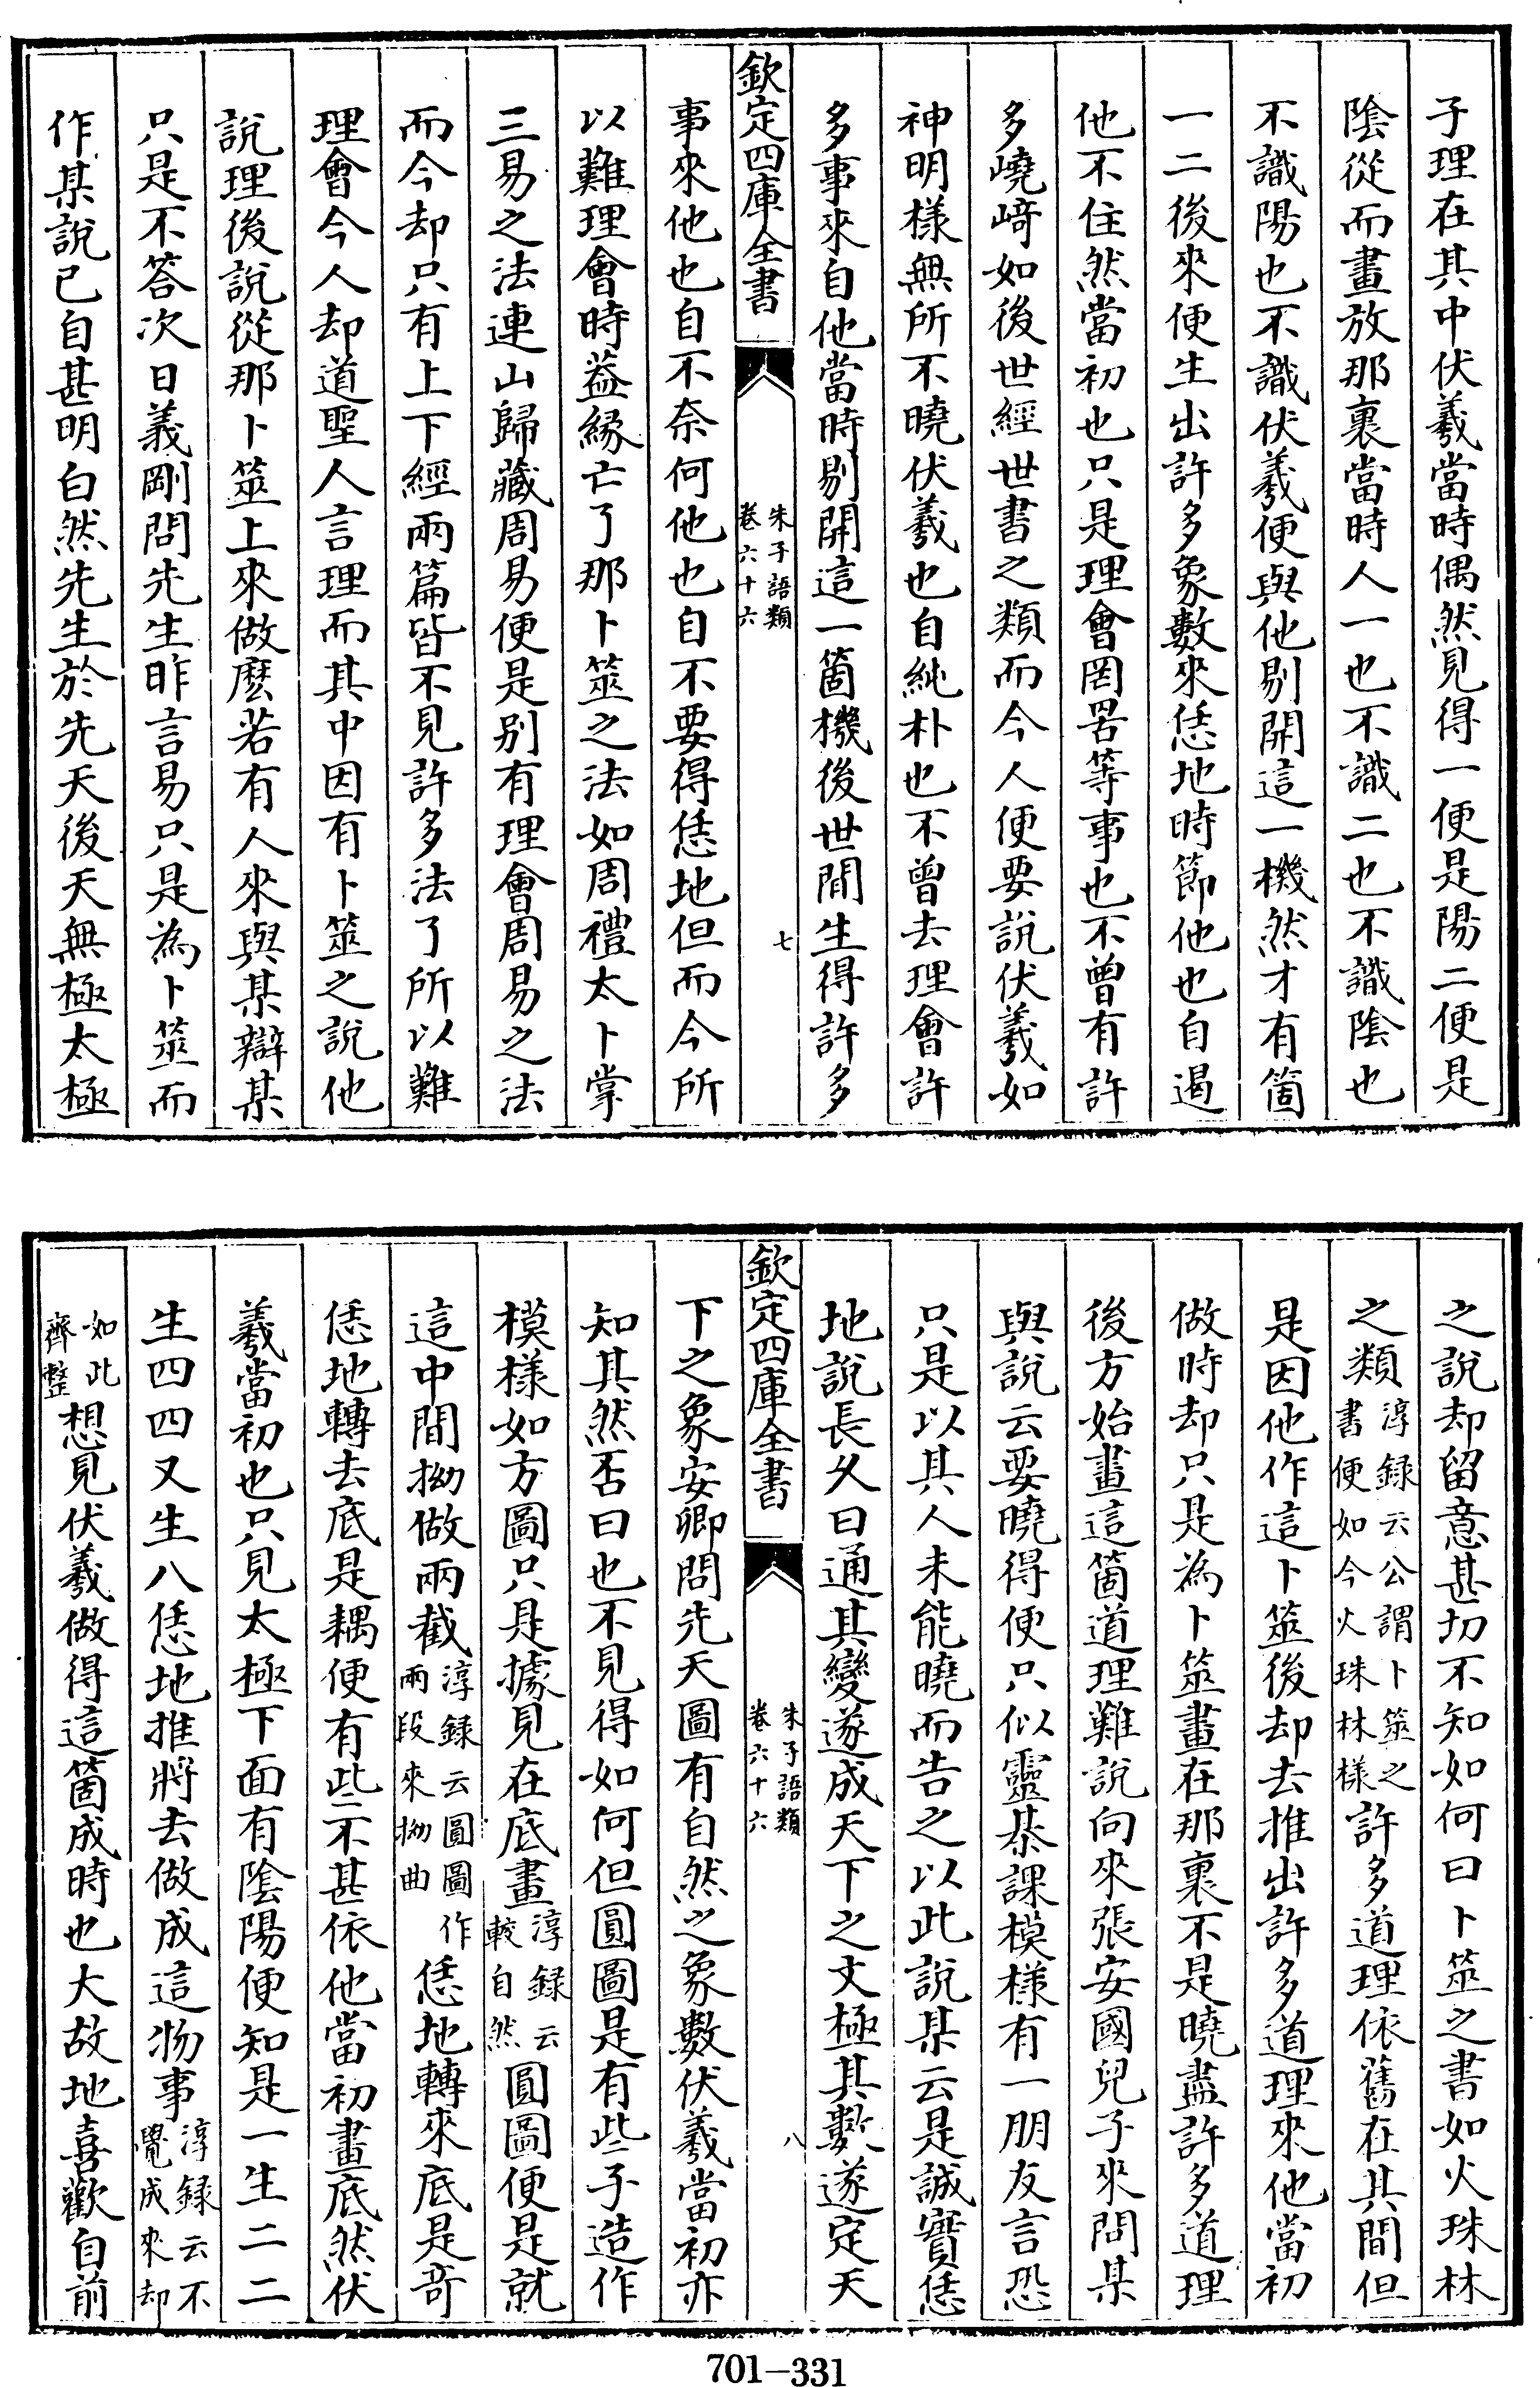 子理在其中伏羲當時偶然見得一便是陽二便是
陰從而畫放那裏當時人一也不識二也不識陰也
不識陽也不識伏羲便與他剔開這一機然才有箇
一二後來便生出許多象數來恁地時節他也自遏
他不住然當初也只是理會罔罟等事也不曾有許
多嶢﨑如後世經世書之類而今人便要説伏羲如
神明樣無所不曉伏羲也自純朴也不曾去理會許
多事來自他當時剔開這一箇機後世間生得許多
欽定四庫全書
朱子語類
卷六十六
七
事來他也自不奈何他也自不要得恁地但而今所
以難理會時葢緣亡了那卜筮之法如周禮太卜掌
三易之法連山歸藏周易便是别有理會周易之法
而今却只有上下經兩篇皆不見許多法了所以難
理會今人却道聖人言理而其中因有卜筮之說他
說理後說從那卜筮上來做麽若有人來與某辯某
只是不答次日義剛問先生昨言易只是為卜筮而
作某說已自甚明白然先生於先天後天無極太極
之說却留意甚切不知如何曰卜筮之書如火珠林
之類淳録云公謂卜筮之書便如今火珠林様許多道理依舊在其間但
是因他作這卜筮後却去推出許多道理來他當初
做時却只是為卜筮畫在那裏不是曉盡許多道理
後方始畫這箇道理難說向來張安國兒子來問某
與説云要曉得便只似靈棊課模様有一朋友言恐
只是以其人未能曉而告之以此說某云是誠實恁
地說長久曰通其變遂成天下之文極其數遂定天
欽定四庫全書
朱子語類
卷六十六
八
下之象安卿問先天圖有自然之象數伏羲當初亦
知其然否曰也不見得如何但圓圖是有些子造作
模様如方圖只是據見在底畫淳録云較自然圓圖便是就
這中間拗做兩截淳録云圓圖作兩段來拗曲恁地轉來底是奇
恁地轉去底是耦便有些不甚依他當初畫底然伏
羲當初也只見太極下面有陰陽便知是一生二二
生四四又生八恁地推將去做成這物事淳録云不覺成來却
如此齊整想見伏羲做得這箇成時也大故地喜歡自前
701-331